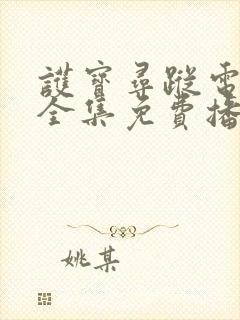 護寶尋蹤電
全集免費播
姚某